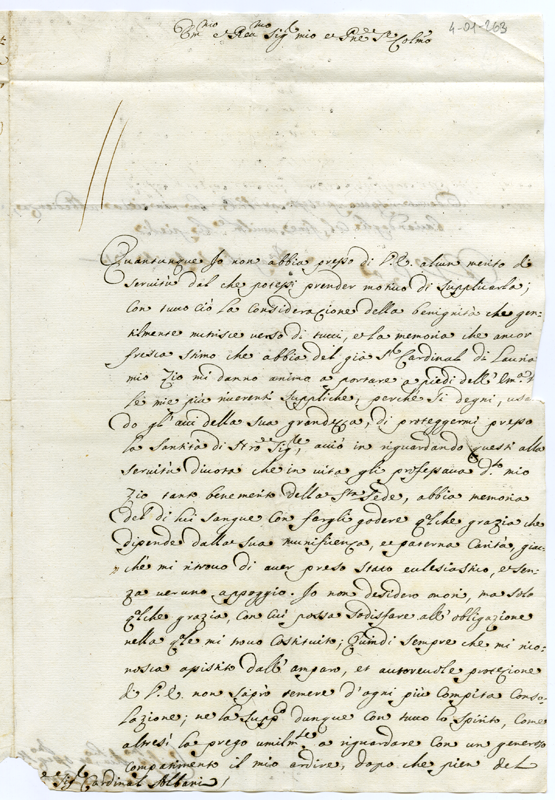 4-01-263
Em.mo e Rev.mo Sig.r mio et Pne Colmo
Quantunque Io non abbia presso di V.E. alcun merito di
servitù dal che potessi prender motivo di supplicarla;
con tutto ciò la considerazione della benignità che gen-
tilmente nutrisce verso di tutti, et la memoria che ancor
fresca stimo che abbia del già Sr Cardinal di Lauria
mio Zio mi danno animo a portare a piedi dell' Em.a V.
le mie più riverenti suppliche, perche si degni, usan
do gl' atti della sua grandezza, di proteggermi presso
la Santità di Nro Sig.re, acciò in riguardando questi alla
servitù divota che in vita gli professava d.to mio
Zio tanto benemerito della Sta Sede, abbia memoria
del di lui sangue con fargli godere qlche grazia che
dipende dalla sua munificenza, et paterna Carità, giac-
chè mi ritrovo di aver preso stato ecclesiastico, et sen-
za veruno appoggio. Io non desidero mori, ma solo
qlche grazia, con cui possa sodisfare all' obligazione
nella qle mi trovo costituito; Quindi sempre che mi rico-
nosca assistito dall' amparo, et autorevole protezione
di V.E. non saprò temere d'ogni più compita conso-
lazione; ne la suppco dunque con tutto lo spirito, come
altresì la prego umilmte a riguardare con un generoso
compatimento il mio ardire, dopo che pien del
Sigr Cardinal Albani